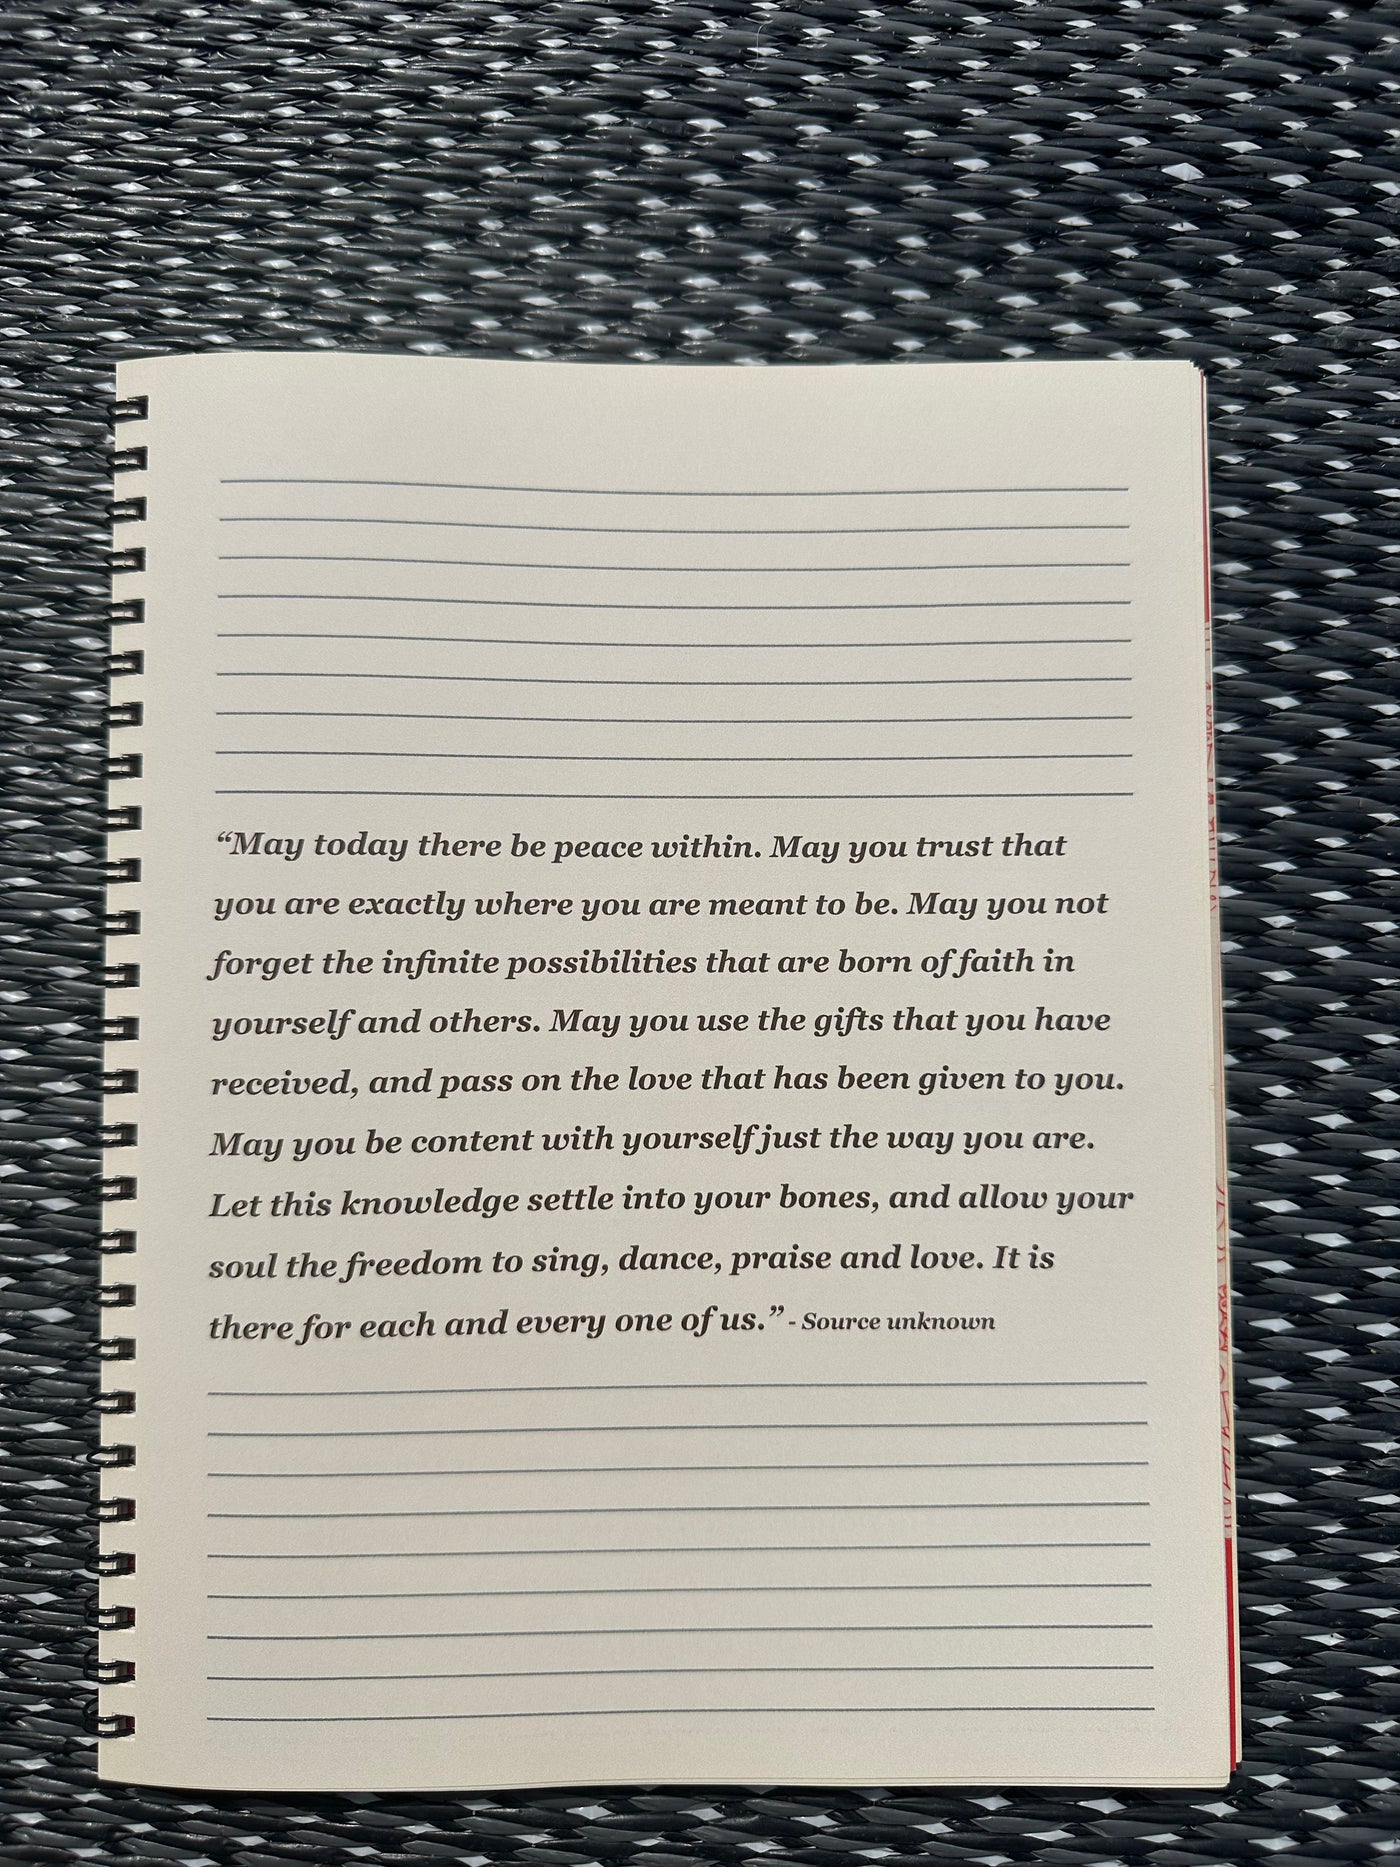 “May today there be peace within. May you trust that
you are exactly where you are meant to be. May you not
forget the infinite possibilities that are born of faith in
yourself and others. May you use the gifts that you have
received, and pass on the love that has been given to you.
May you be content with yourself just the way you are.
Let this knowledge settle into your bones, and allow your
soul the freedom to sing, dance, praise and love. It is
there for each and every one of us.” - Source unknown